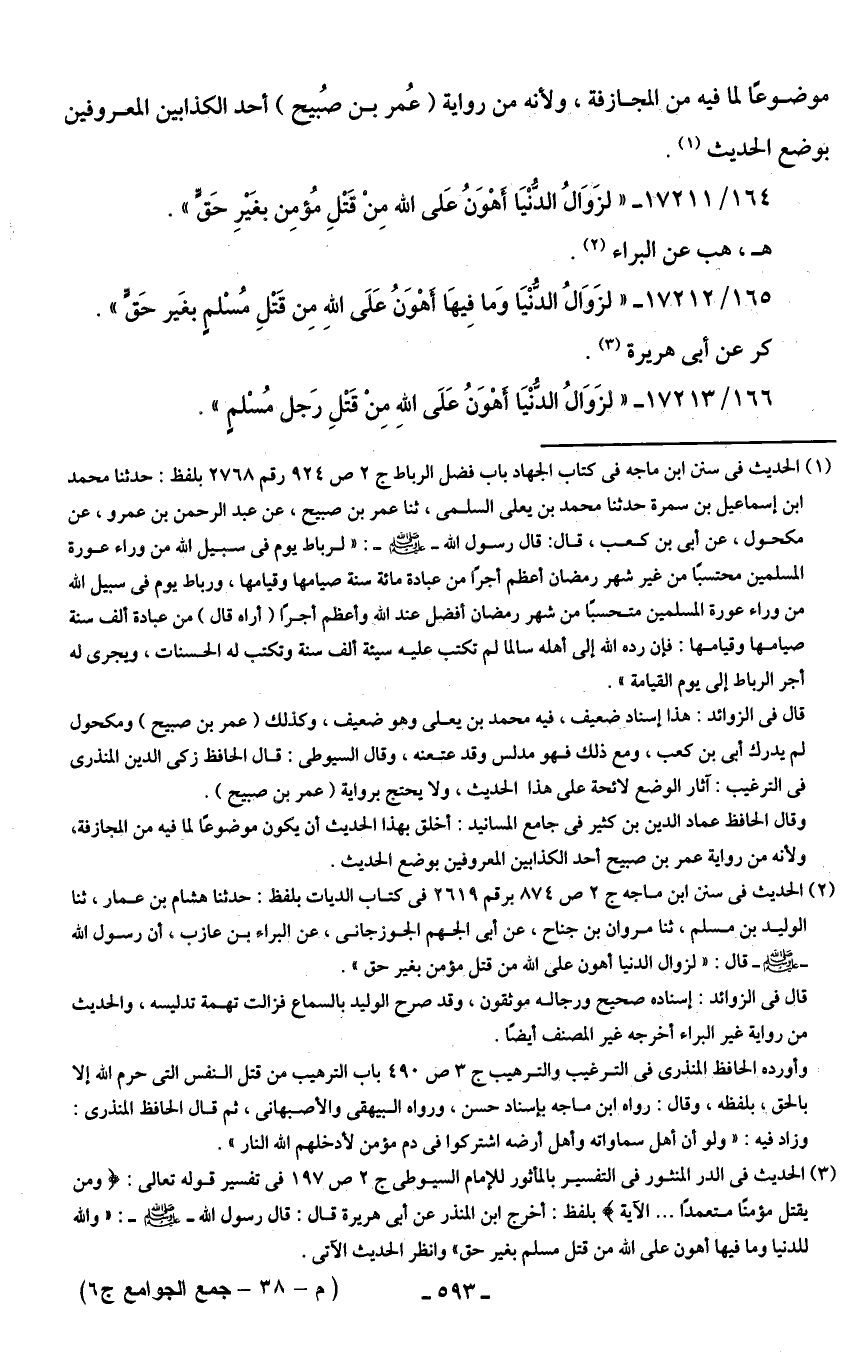 موضوعًا لما فيه من المجازفة ، ولأنه من رواية ( عُمر بن صُبيح ) أحد الكذابين المعروفين
بوضع الحديث (١) .
١٦٤/ ١٧٢١١ـ « لزَوَالُ الدُّنْيَا أهْوَنُ عَلى الله مِنْ قَتْلِ مُؤمِن بغَيْرِ حَقٍّ » .
هـ ، هب عن البراء (٢) .
١٦٥/ ١٧٢١٢ـ « لزَوَالُ الدُّنْيَا وَمَا فِيهَا أَهْوَنُ عَلَى اللهِ مِن قَتْلِ مُسْلمٍ بغَير حَقٍّ » .
كر عن أبى هريرة (٣) .
١٦٦/ ١٧٢١٣ـ « لزَوَالُ الدُّنْيَا أهْوَنُ عَلَى اللهِ مِنْ قَتْلِ رَجل مُسْلمٍ » .
(١) الحديث فى سنن ابن ماجه فى كتاب الجهاد باب فضل الرباط ج ٢ ص ٩٢٤ رقم ٢٧٦٨ بلفظ : حدثنا محمد
ابن إسماعيل بن سمرة حدثنا محمد بن يعلى السلمى ، ثنا عمر بن صبيح ، عن عبد الرحمن بن عمرو ، عن
مكحول ، عن أبى بن كعب ، قال: قال رسول الله ـ ﷺ ـ : « لرباط يوم فى سبيل الله من وراء عورة
المسلمين محتسبًا من غير شهر رمضان أعظم أجرًا من عبادة مائة سنة صيامها وقيامها ، ورباط يوم فى سبيل الله
من وراء عورة المسلمين متحسبًا من شهر رمضان أفضل عند الله وأعظم أجرًا ( أراه قال ) من عبادة ألف سنة
صيامها وقيامها : فإن رده الله إلى أهله سالما لم تكتب عليه سيئة ألف سنة وتكتب له الحسنات ، ويجرى له
أجر الرباط إلى يوم القيامة » .
قال فى الزوائد : هذا إسناد ضعيف ، فيه محمد بن يعلى وهو ضعيف ، وكذلك ( عمر بن صبيح ) ومكحول
لم يدرك أبى بن كعب ، ومع ذلك فهو مدلس وقد عتعنه ، وقال السيوطى : قال الحافظ زكى الدين المنذرى
فى الترغيب : آثار الوضع لائحة على هذا الحديث ، ولا يحتج برواية ( عمر بن صبيح ) .
وقال الحافظ عماد الدين بن كثير فى جامع المسانيد : أخلق بهذا الحديث أن يكون موضوعًا لما فيه من المجازفة،
ولأنه من رواية عمر بن صبيح أحد الكذابين المعروفين بوضع الحديث .
(٢) الحديث فى سنن ابن ماجه ج ٢ ص ٨٧٤ برقم ٢٦١٩ فى كتاب الديات بلفظ : حدثنا هشام بن عمار ، ثنا
الوليد بن مسلم ، ثنا مروان بن جناح ، عن أبى الجهم الجوزجانى ، عن البراء بن عازب ، أن رسول الله
ـ ﷺ ـ قال : « لزوال الدنيا أهون على الله من قتل مؤمن بغير حق » .
قال فى الزوائد : إسناده صحيح ورجاله موثقون ، وقد صرح الوليد بالسماع فزالت تهمة تدليسه ، والحديث
من رواية غير البراء أخرجه غير المصنف أيضًا .
وأورده الحافظ المنذرى فى الترغيب والترهيب ج ٣ ص ٤٩٠ باب الترهيب من قتل النفس التى حرم الله إلا
بالحق ، بلفظه ، وقال : رواه ابن ماجه بإسناد حسن ، ورواه البيهقى والأصبهانى ، ثم قال الحافظ المنذرى :
وزاد فيه : « ولو أن أهل سماواته وأهل أرضه اشتركوا فى دم مؤمن لأدخلهم الله النار » .
(٣) الحديث فى الدر المنثور فى التفسير بالمأثور للإمام السيوطى ج ٢ ص ١٩٧ فى تفسير قوله تعالى : ﴿ ومن
يقتل مؤمنًا متعمدًا ... الآية ﴾ بلفظ : أخرج ابن المنذر عن أبى هريرة قال : قال رسول الله ـ ﷺ ـ : « والله
للدنيا وما فيها أهون على الله من قتل مسلم بغير حق» وانظر الحديث الآتى .
ـ ٥٩٣ ـ
( م – ٣٨ – جمع الجوامع ج٦)